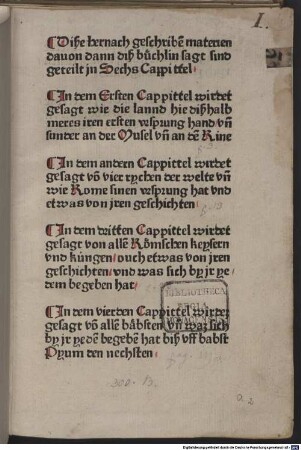 1.
¶Dise hernach geschribē materien
dauon dann diß bůchlin sagt sind
geteilt jn Sechs Cappittel
¶In dem Ersten Cappittel wirdet
gesagt wie die lannd hie dißhalb
meres iren ersten vrsprung hand vn̄
sunder an der Musel vn̄ an dē Rine
¶In dem andern Cappittel wirdet
gesagt vō vier rychen der welte vn̄
wie Rome sinen vrsprung hat vnd
etwas von jren geschichten
¶In dem dritten Cappittel wirdet
gesagt von allē Römschen keysern
vnd küngen / ouch etwas von jren
geschichten / vnd was sich by jr ye⸗
dem begeben hat
¶In dem vierden Cappittel wirdet
gesagt vō allē bäbsten vn̄ waz sich
by jr yedē begebē hat biß vff babst
Pyum den nechsten
BIBLIOTHECA
REGIA
MONACENSIS
a 2